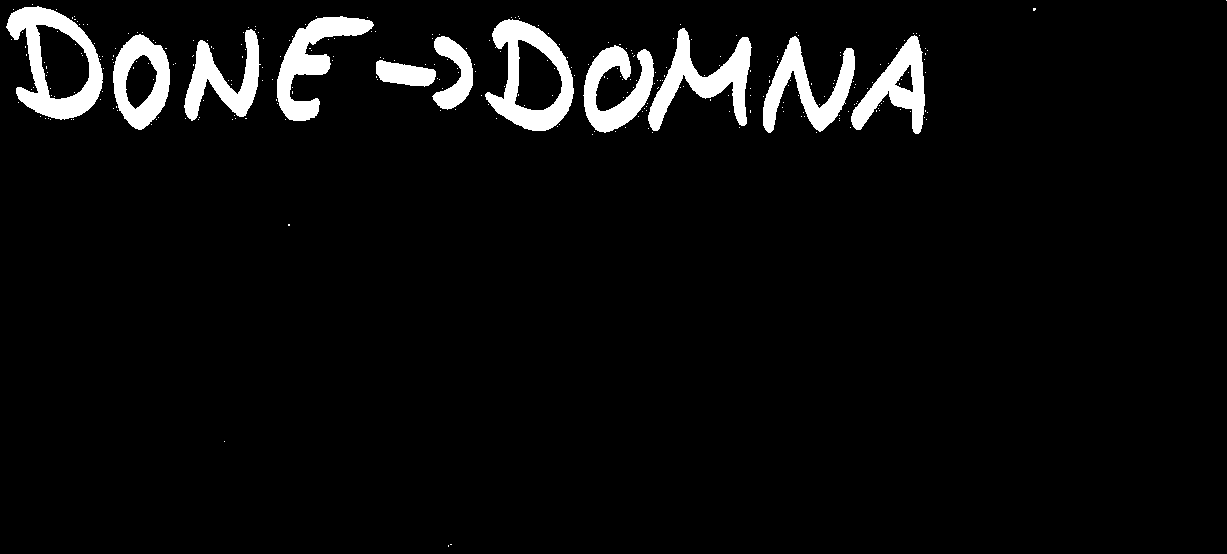 DONE → DOMNA